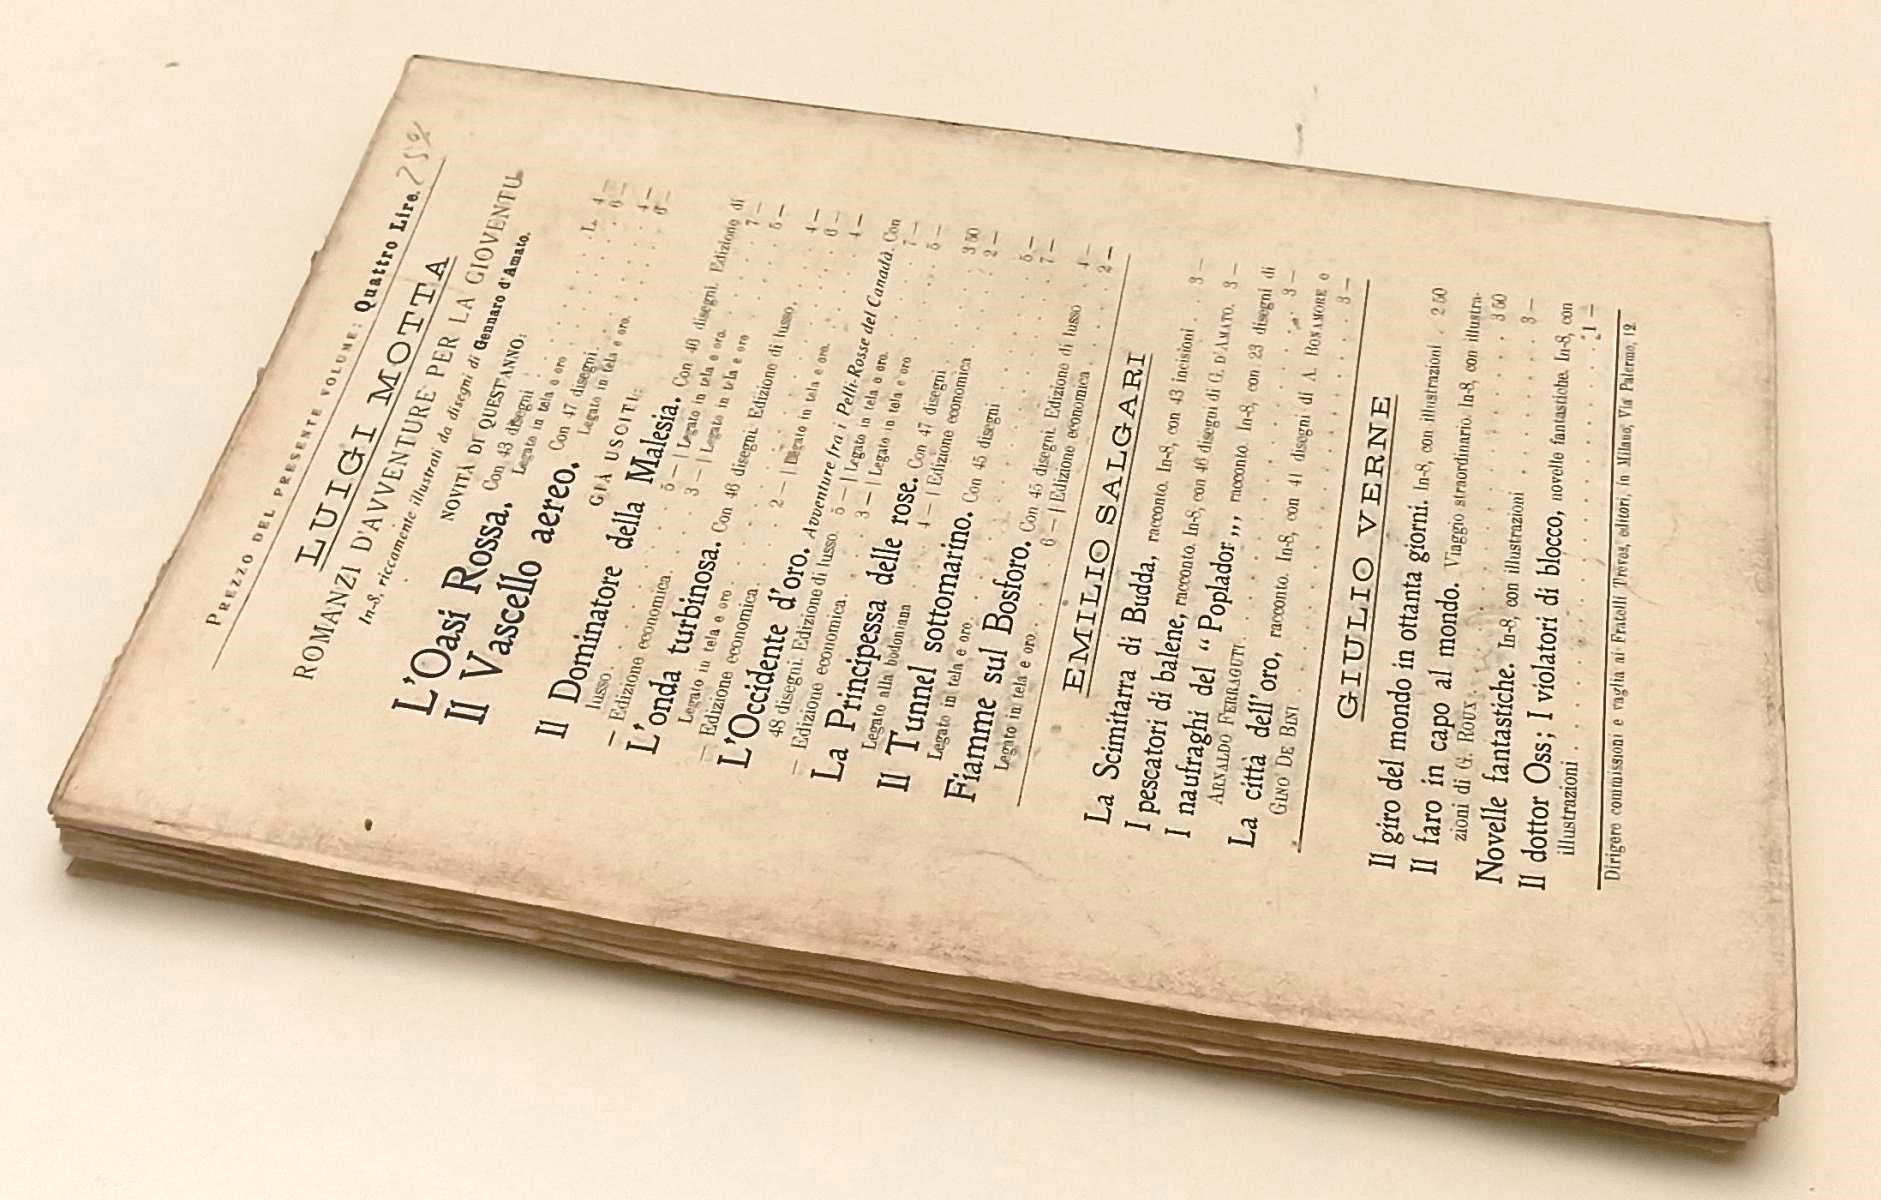 PREZZO DEL PRESENTE VOLUME: Quattro Lire.
LUIGI MOTTA
ROMANZI D'AVVENTURE PER LA GIOVENTÙ
In-8, riccamente illustrati da disegni di Gennaro d'Amato.
NOVITÀ DI QUEST'ANNO:
L'Oasi Rossa. Con 43 disegni . . . . . L. 4 —
Legato in tela e oro . . . . . 6 —
Il Vascello aereo. Con 47 disegni. . . . . 4 —
Legato in tela e oro. . . . . 6 —
GIÀ USCITI:
Il Dominatore della Malesia. Con 46 disegni. Edizione di
lusso . . . . . 5 — | Legato in tela e oro. . . . . 7 —
— Edizione economica. . . . . 3 — | Legato in tela e oro . . . . . 5 —
L'onda turbinosa. Con 46 disegni. Edizione di lusso, . . . . . 4 —
Legato in tela e oro . . . . . 6 —
— Edizione economica . . . . . 2 — | Legato in tela e oro. . . . . 4 —
L'Occidente d'oro. Avventure fra i Pelli-Rosse del Canadà. Con
48 disegni. Edizione di lusso. 5 — | Legato in tela e oro. . . . . 7 —
— Edizione economica. . . . . 3 — | Legato in tela e oro . . . . . 5 —
La Principessa delle rose. Con 47 disegni . . . . . 3 50
Legato alla bodoniana . . . . . 4 — | Edizione economica . . . . . 2 —
Il Tunnel sottomarino. Con 45 disegni . . . . . 5 —
Legato in tela e oro . . . . . 7 —
Fiamme sul Bosforo. Con 45 disegni. Edizione di lusso . . . . . 4 —
Legato in tela e oro . . . . . 6 — | Edizione economica . . . . . 2 —
EMILIO SALGARI
La Scimitarra di Budda, racconto. In-8, con 43 incisioni . . . 3 —
I pescatori di balene, racconto. In-8, con 46 disegni di G. D'AMATO. 3 —
I naufraghi del “ Poplador „, racconto. In-8, con 23 disegni di
ARNALDO FERRAGUTI. . . . . 3 —
La città dell'oro, racconto. In-8, con 41 disegni di A. BONAMORE e
GINO DE BINI . . . . . 3 —
GIULIO VERNE
Il giro del mondo in ottanta giorni. In-8, con illustrazioni . 2 50
Il faro in capo al mondo. Viaggio straordinario. In-8, con illustra-
zioni di G. ROUX . . . . . 3 50
Novelle fantastiche. In-8, con illustrazioni . . . . . 3 —
Il dottor Oss; I violatori di blocco, novelle fantastiche. In-8, con
illustrazioni . . . . . 1 —
Dirigere commissioni e vaglia ai Fratelli Treves, editori, in Milano, Via Palermo, 12.